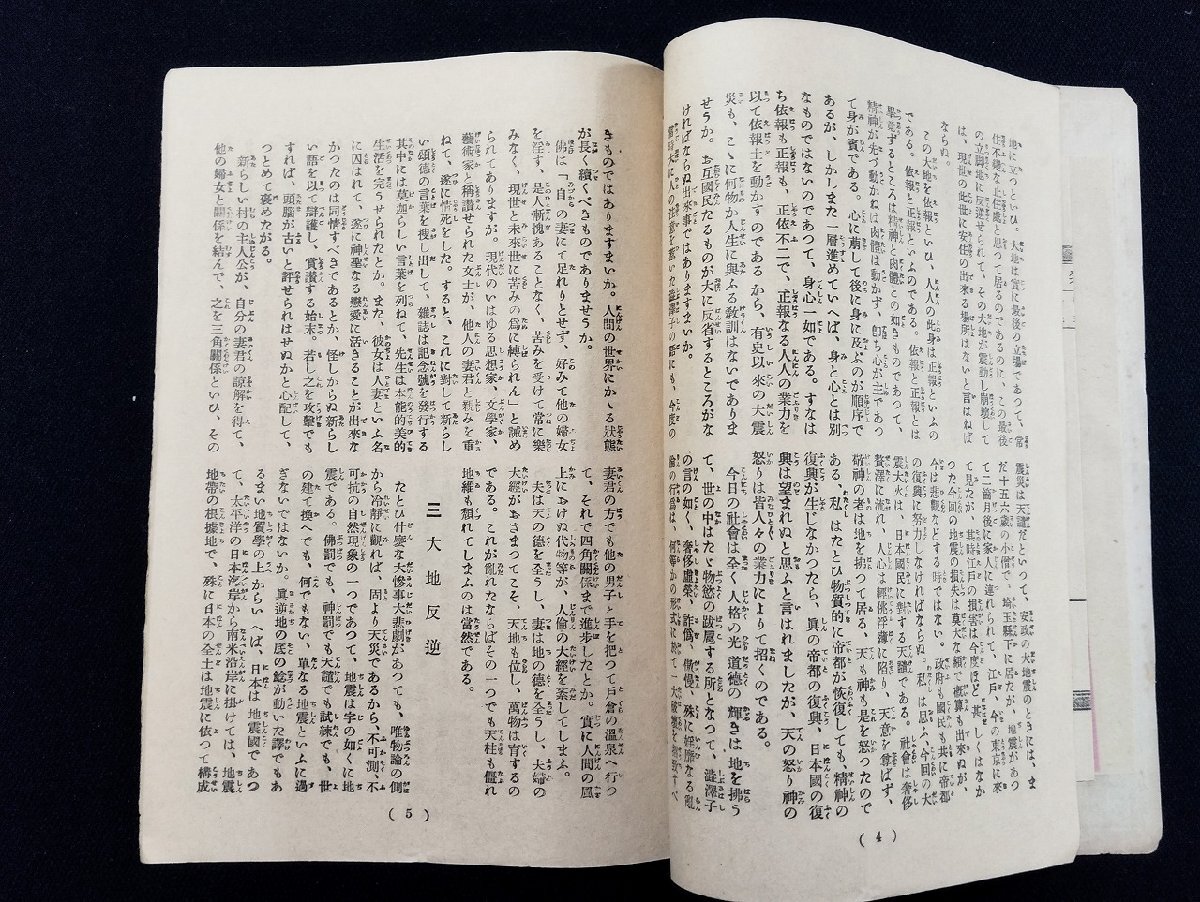 地に立つといひ、大地は實に最後の立場であつて、常
住不變な上住處と思つて居るのであるのに、この最後
の立脚地に反逆せられて、その大地が震動し崩壞して
は、現世の此世に安住の出來る場所はないと言はねば
ならぬ。
この大地を依報といひ、人人の此身は正報といふの
である。依報と正報といふのである。依報と正報とは
畢竟ずるところは精神と肉體この如きものであつて、
精神が先づ動かねは肉體は動かず、卽ち心が主であつ
て身が賓である。心に萠して後に身に及ぶのが順序で
あるが、しかしまた一層進めていへば、身と心とは別
なものではないのであつて、身心一如である。すなは
ち依報も正報も、正依不二で、正報なる人人の業力を
以て依報土を動かすのである から、有史以來の大震
災も、こゝに何物か人生に與ふる敎訓はないでありま
せうか。お互國民たるものが大に反省するところがな
ければならぬ出來事ではありますまいか。
當時大に人の注意を惹いた澁澤子の語にも、今度の
震災は天譴だといつて、安政の大地震のときには、ま
だ十五六歲の小僧で、埼玉縣下に居たが、地震があつ
て二箇月後に家人に連れられて、江戸、今の東京に來
て見たが、其時江戸の損害は今度ほど、甚しくはなか
つた、今回の地震の損失は莫大な額で槪算も出來ぬが、
今は悲觀などする時ではない。政府も國民も共に帝都
の復興に努力しなければならない。私は思ふ、今回の大
震大火は、日本國民に對する天譴である。社會は奢侈
贅澤に流れ、人心は輕佻浮薄に陷り、天意を尊ばず、
敬神の者は地を拂つて居る、天も神も是を怒つたので
ある、私はたとひ物質的に帝都が恢復しても、精神の
復興が生じなかつたら、眞の帝都の復興、日本國の復
興は望まれぬと思ふと言はれましたが、天の怒り神の
怒りは皆人々の業力によりて招くのである。
今日の社會は全く人格の光 道德の 輝きは 地を拂う
て、世の中はたゞ物慾の跋扈する所となつて、澁澤子
の言の如く、奢侈虛榮、詐僞、傲慢、殊に婬靡なる亂
倫の行爲は、何等かの形式に於て一大破壞を
( 4 )
きものではありますまいか。人間の世界にかゝる狀態
が長く續くべきものでありませうか。
佛は「自らの妻にて足れりとせず、好みて他の婦女
を淫す、是人慚愧あることなく、苦みを受けて常に樂
みなく、現世と未來世に苦みの爲に縛られん」と誡め
られてありますが。現代のいはゆる思想家、文學家、
藝術家と稱讃せられた女士が、他人の妻君と親みを重
ねて、遂に情死をした。すると、これに對して新らし
い頌德の言葉を搜し出して、雜誌は記念號を發行する
其中には莫迦らしい言葉を列ねて、先生は本能的美的
生活を完うせられたとか。また、彼女は人妻といふ名
に囚はれて、遂に神聖なる戀愛に活きることが出來な
かつたのは同情すべきであるとか、怪しからぬ新らし
い語を以て辯護し、賞讃する始末。若し之を攻擊でも
すれば、頭腦が古いと許せられはせぬかと心配して、
つとめて褒めたがる。
新らしい村の主人公が、自分の妻君の諒解を得て、
他の婦女と關係を結んで、之を三角關係といひ、その
妻君の方でも他の男子と手を把つて戸倉の溫泉へ行つ
て、それで四角關係まで進步したとか。實に人間の風
上におけぬ代物等が、人倫の大經を紊してしまふ。
夫は天の德を全うし、妻は地の德を全うし、夫婦の
大經がおさまつてこそ、天地も位し、萬物は育するの
である。これが亂れたならばその一つでも天柱も傾れ
地維も頽れてしまふのは當然である。
三 大地反逆
たとひ什麽な大慘事大悲劇があつても、唯物論の側
から冷靜に觀れば、固より天災であるから不可測、不
可抗の自然現象の一つであつて、地震は字の如くに地
震である。佛罰でも、神罰でも天譴でも試練でも、世
の建て換へでも、何でもない、單なる地震といふに過
ぎないではないか。眞逆地の底の鯰が動いた譯でもあ
るまい地質學の上からいへば、日本は地震國であつ
て、太平洋の日本沿岸から南米沿岸に掛けては、地震
地帶の根據地で、殊に日本の全土は地震に依つて構成
( 5 )